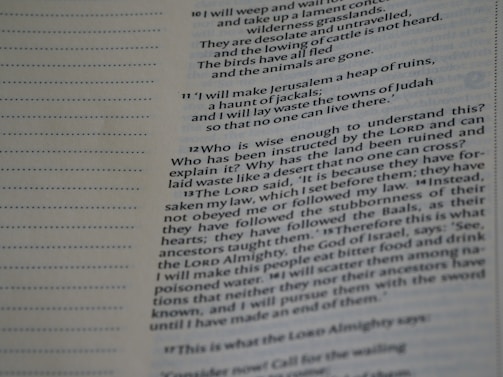 10 I will weep and wail for
and take up a lament conce
wilderness grasslands.
They are desolate and untravelled,
and the lowing of cattle is not heard.
The birds have all fled
and the animals are gone.
11 ‘I will make Jerusalem a heap of ruins,
a haunt of jackals;
and I will lay waste the towns of Judah
so that no one can live there.’
12 Who is wise enough to understand this?
Who has been instructed by the LORD and can
explain it? Why has the land been ruined and
laid waste like a desert that no one can cross?
13 The LORD said, ‘It is because they have for-
saken my law, which I set before them; they have
not obeyed me or followed my law. 14 Instead,
they have followed the stubbornness of their
hearts; they have followed the Baals, as their
ancestors taught them.’ 15 Therefore this is what
the LORD Almighty, the God of Israel, says: ‘See,
I will make this people eat bitter food and drink
poisoned water. 16 I will scatter them among na-
tions that neither they nor their ancestors have
known, and I will pursue them with the sword
until I have made an end of them.’
17 This is what the LORD Almighty says:
‘Consider now! Call for the wailing
to come;
of them.